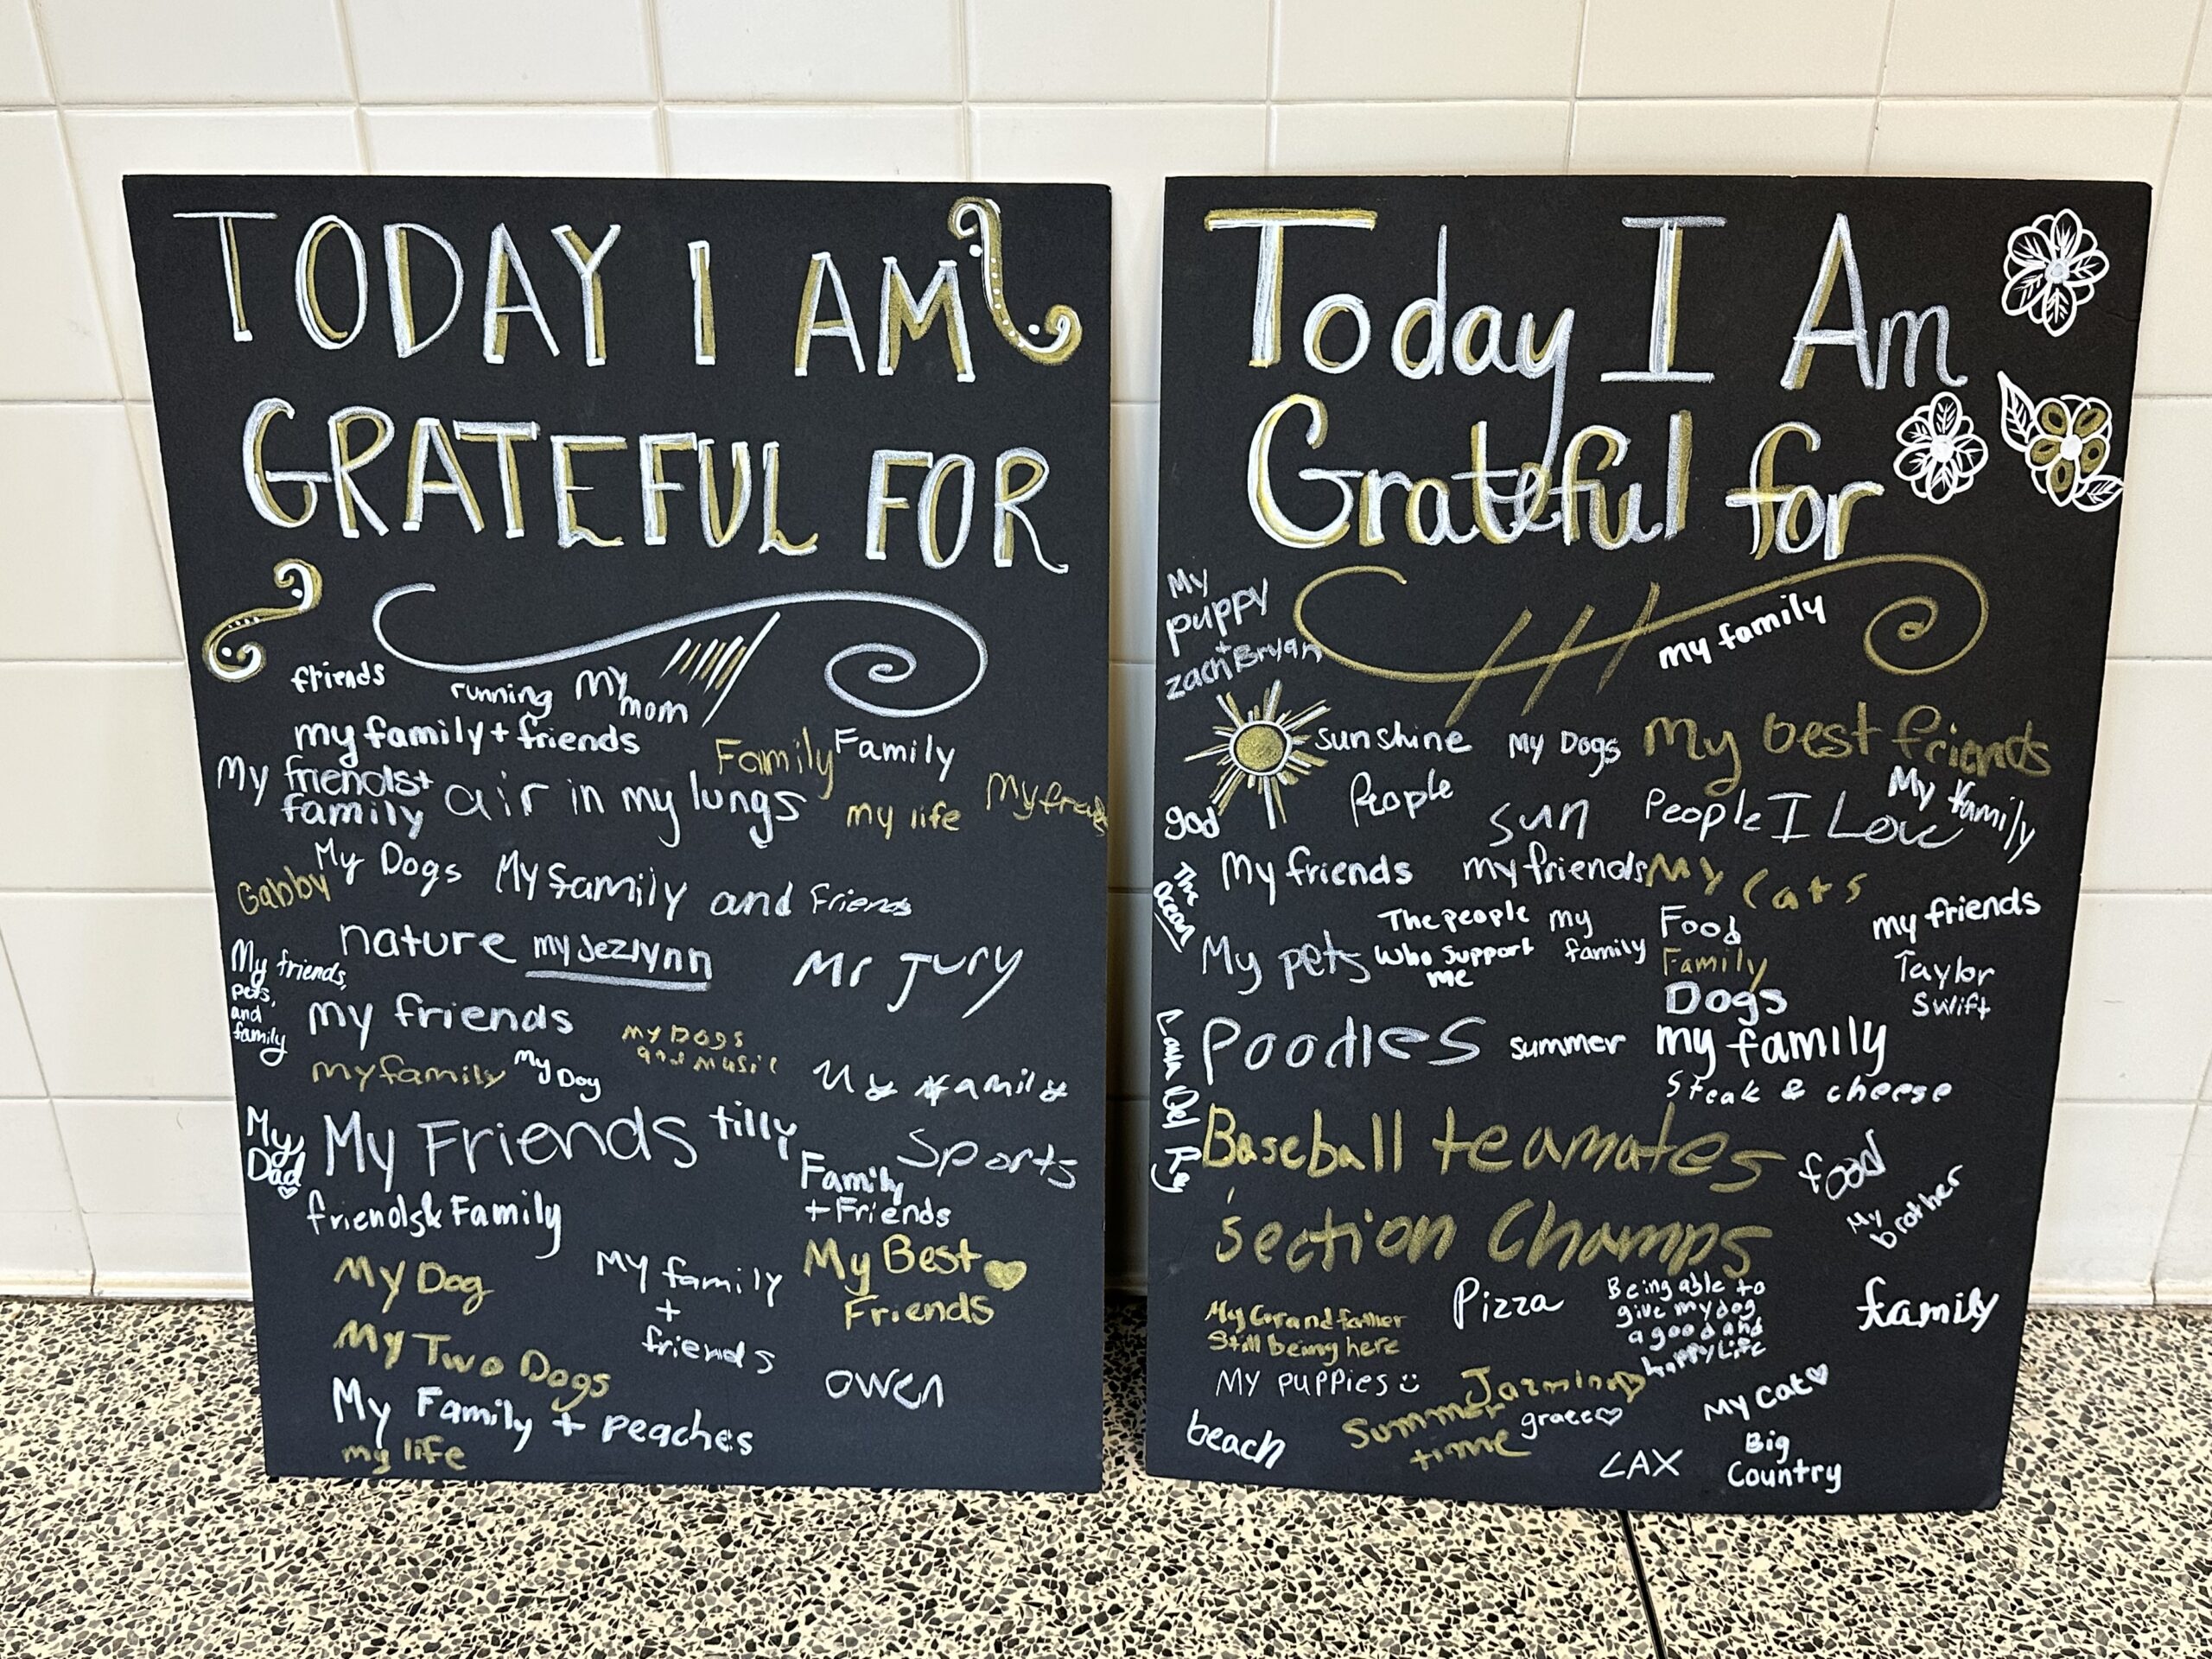 TODAY I AM
GRATEFUL FOR
friends
running
My mom
my family + friends
Family
Family
My friends +
family
air in my lungs
my life
My Dogs
Gabby
My family and friends
nature
my Jezlynn
Mr Jury
My friends,
pets,
and
family
my friends
My Dogs
and music
my family
My Dog
My family
My
Dad
My Friends
tilly
Sports
Family
+ Friends
friends & Family
My Dog
My family
+
friends
My Best
Friends
My Two Dogs
owen
My Family + peaches
my life
Today I Am
Grateful for
My
puppy
+
zach Bryan
my family
sunshine
My Dogs
My best friends
People
god
sun
People I Love
My family
The
ocean
My friends
my friends
My Cats
The people
who support
me
my
family
Food
Family
Dogs
my friends
My pets
Taylor
Swift
Lana Del Rey
Poodles
summer
my family
Steak & cheese
Baseball teamates
food
section Champs
My
brother
My Grandfather
Still being here
Pizza
Being able to
give my dog
a good and
happy life
family
My puppies
Jazmine
Summer
time
grace
My Cat
beach
LAX
Big
Country